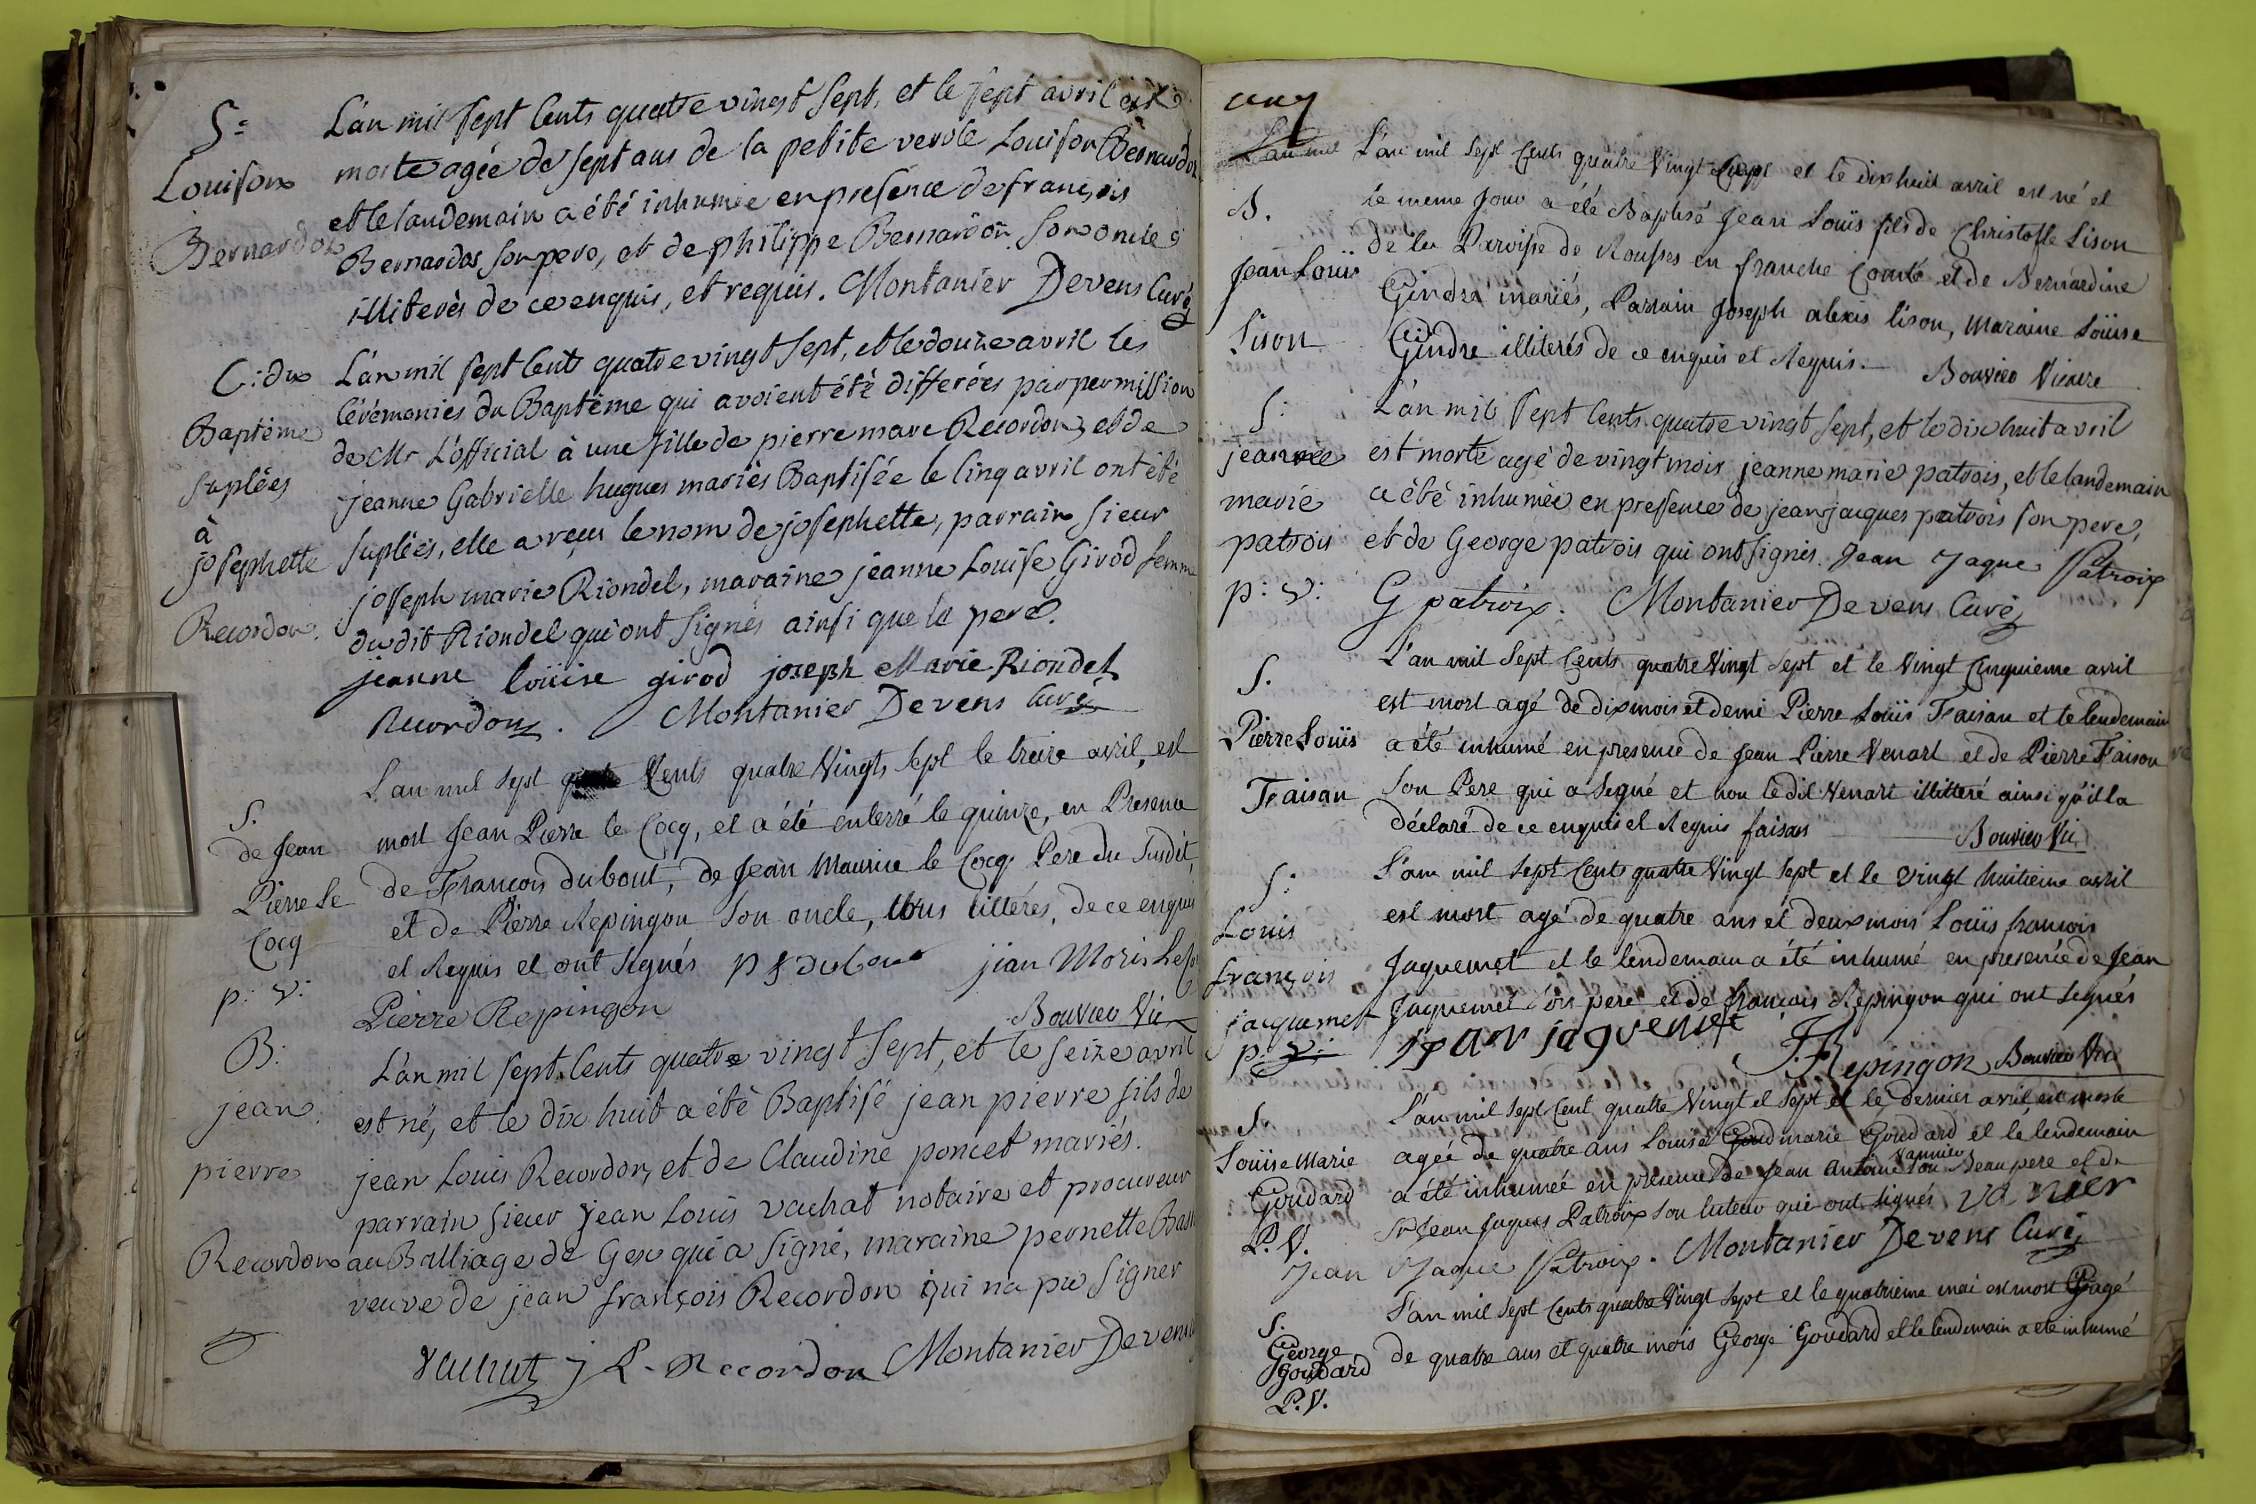 S:
Louison
Bernardon
L'an mil sept Cents quatre vingt sept, et le sept avril est
morte agée de sept ans de la petite verole Louison Bernardon
et le landemain a été inhumée en presence de françois
Bernardon son pere, et de philippe Bernardon son oncle
illiterés de ce enquis, et requis. Montanier Devens Curé
C: du
Baptême
suplées
à
josephette
Recordon.
L'an mil sept Cents quatre vingt sept, et le douze avril les
Cérémonies du Baptême qui avoient été differées par permission
de Mr L'official à une fille de pierre marc Recordon, et de
jeanne Gabrielle hugues mariés Baptisée le Cinq avril ont été
suplées, elle a reçu le nom de josephette, parrain sieur
joseph marie Riondel, maraine jeanne Louise Girod femme
du dit Riondel qui ont signés ainsi que le pere.
jeanne loüise girod joseph Marie Riondel
Recordon. Montanier Devens Curé
S.
de Jean
Pierre Le
Cocq
p: v:
L'an mil sept Cents quatre Vingts sept le treize avril, est
mort Jean Pierre le Cocq, et a été enterré le quinze, en Presence
de François dubout, de Jean Maurice le Cocq Pere du susdit,
et de Pierre Repingon son oncle, tous littérés, de ce enquis
et Requis et ont signés p f dubout jian Moris Le
Pierre Repingon Bouvier Vic
B:
jean
pierre
Recordon
L'an mil sept Cents quatre vingt sept, et le seize avril
est né, et le dix huit a été Baptisé jean pierre fils de
jean Louis Recordon, et de Claudine poncet mariés.
parrain sieur jean Louis vachat notaire et procureur
au Balliage de Gex qui a signé, maraine pernette
veuve de jean françois Recordon qui n'a pu signer
vachat j L. Recordon Montanier Devens
L'an mil
B.
Jean Louis
Lison
L'an mil sept Cents quatre Vingt sept et le dix huit avril est né et
le meme jour a été Baptisé Jean Louis fils de Christofle Lison
de la Paroisse de Rousses en franche Comté et de Bernardine
Gindre mariés, Parrain Joseph alexis lison, Maraine Louise
Gindre illiterés de ce enquis et Requis. Bouvier Vicaire
S:
jeanne
marie
patrois
p: v:
L'an mil sept Cents quatre vingt sept, et le dix huit avril
est morte agé de vingt mois jeanne marie patrois, et le landemain
a été inhumée en presence de jean jacques patrois son pere,
et de George patrois qui ont signés. Jean Jaque Patroix
G patroix. Montanier Devens Curé
S.
Pierre Louis
Faisan
L'an mil Sept Cents quatre Vingt sept et le Vingt Cinquieme avril
est mort agé de dix mois et demi Pierre Louis Faisan et le lendemain
a été inhumé en presence de Jean Pierre Venart et de Pierre Faison
son Pere qui a signé et non le dit Venart illitteré ainsi qu'il l'a
déclaré de ce enquis et Requis faisan Bouvier Vic
S:
Louis
françois
jacquemet
p: v:
L'an mil Sept Cents quatre Vingt Sept et le vingt huitieme avril
est mort agé de quatre ans et deux mois Louis francois
Jaquemet et le lendemain a été inhumé en presence de Jean
Jaquemet son pere et de francois Repingon qui ont signés
jean jaquemet
F. Repingon Bouvier Vic
S.
Louise Marie
Goudard
P. V.
L'an mil Sept Cent quatre Vingt et Sept et le dernier avril est morte
agée de quatre ans Louise Goud marie Goudard et le lendemain
a été inhumée en presence de Jean Antoine Vannier son Beau pere et de
Sr Jean Jaques Patroix son tuteur qui ont signés vanier
Jean Jaque Patroix. Montanier Devens Curé
S.
George
Goudard
P. V.
L'an mil Sept Cents quatre Vingt Sept et le quatrieme mai est mort agé
de quatre ans et quatre mois George Goudard et le lendemain a eté inhumé